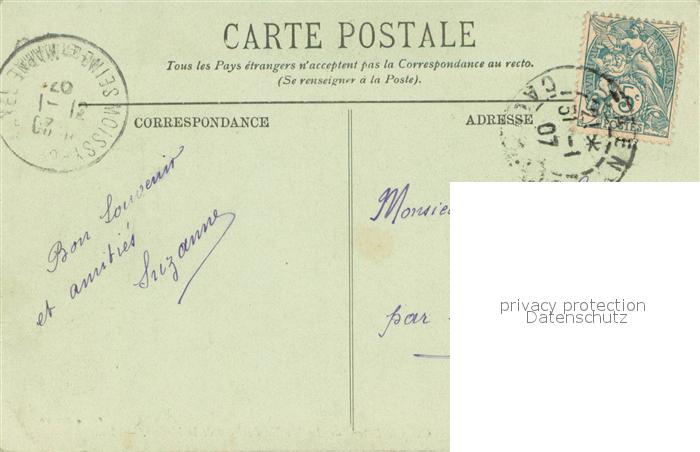 CARTE POSTALE
Tous les Pays étrangers n'acceptent pas la Correspondance au recto.
(Se renseigner à la Poste).
CORRESPONDANCE
ADRESSE
Bon Souvenir
et amitiés
Suzanne
Monsie
par
privacy protection
Datenschutz
MOISSY
SEINE ET MARNE
07
POSTES
15
1
07